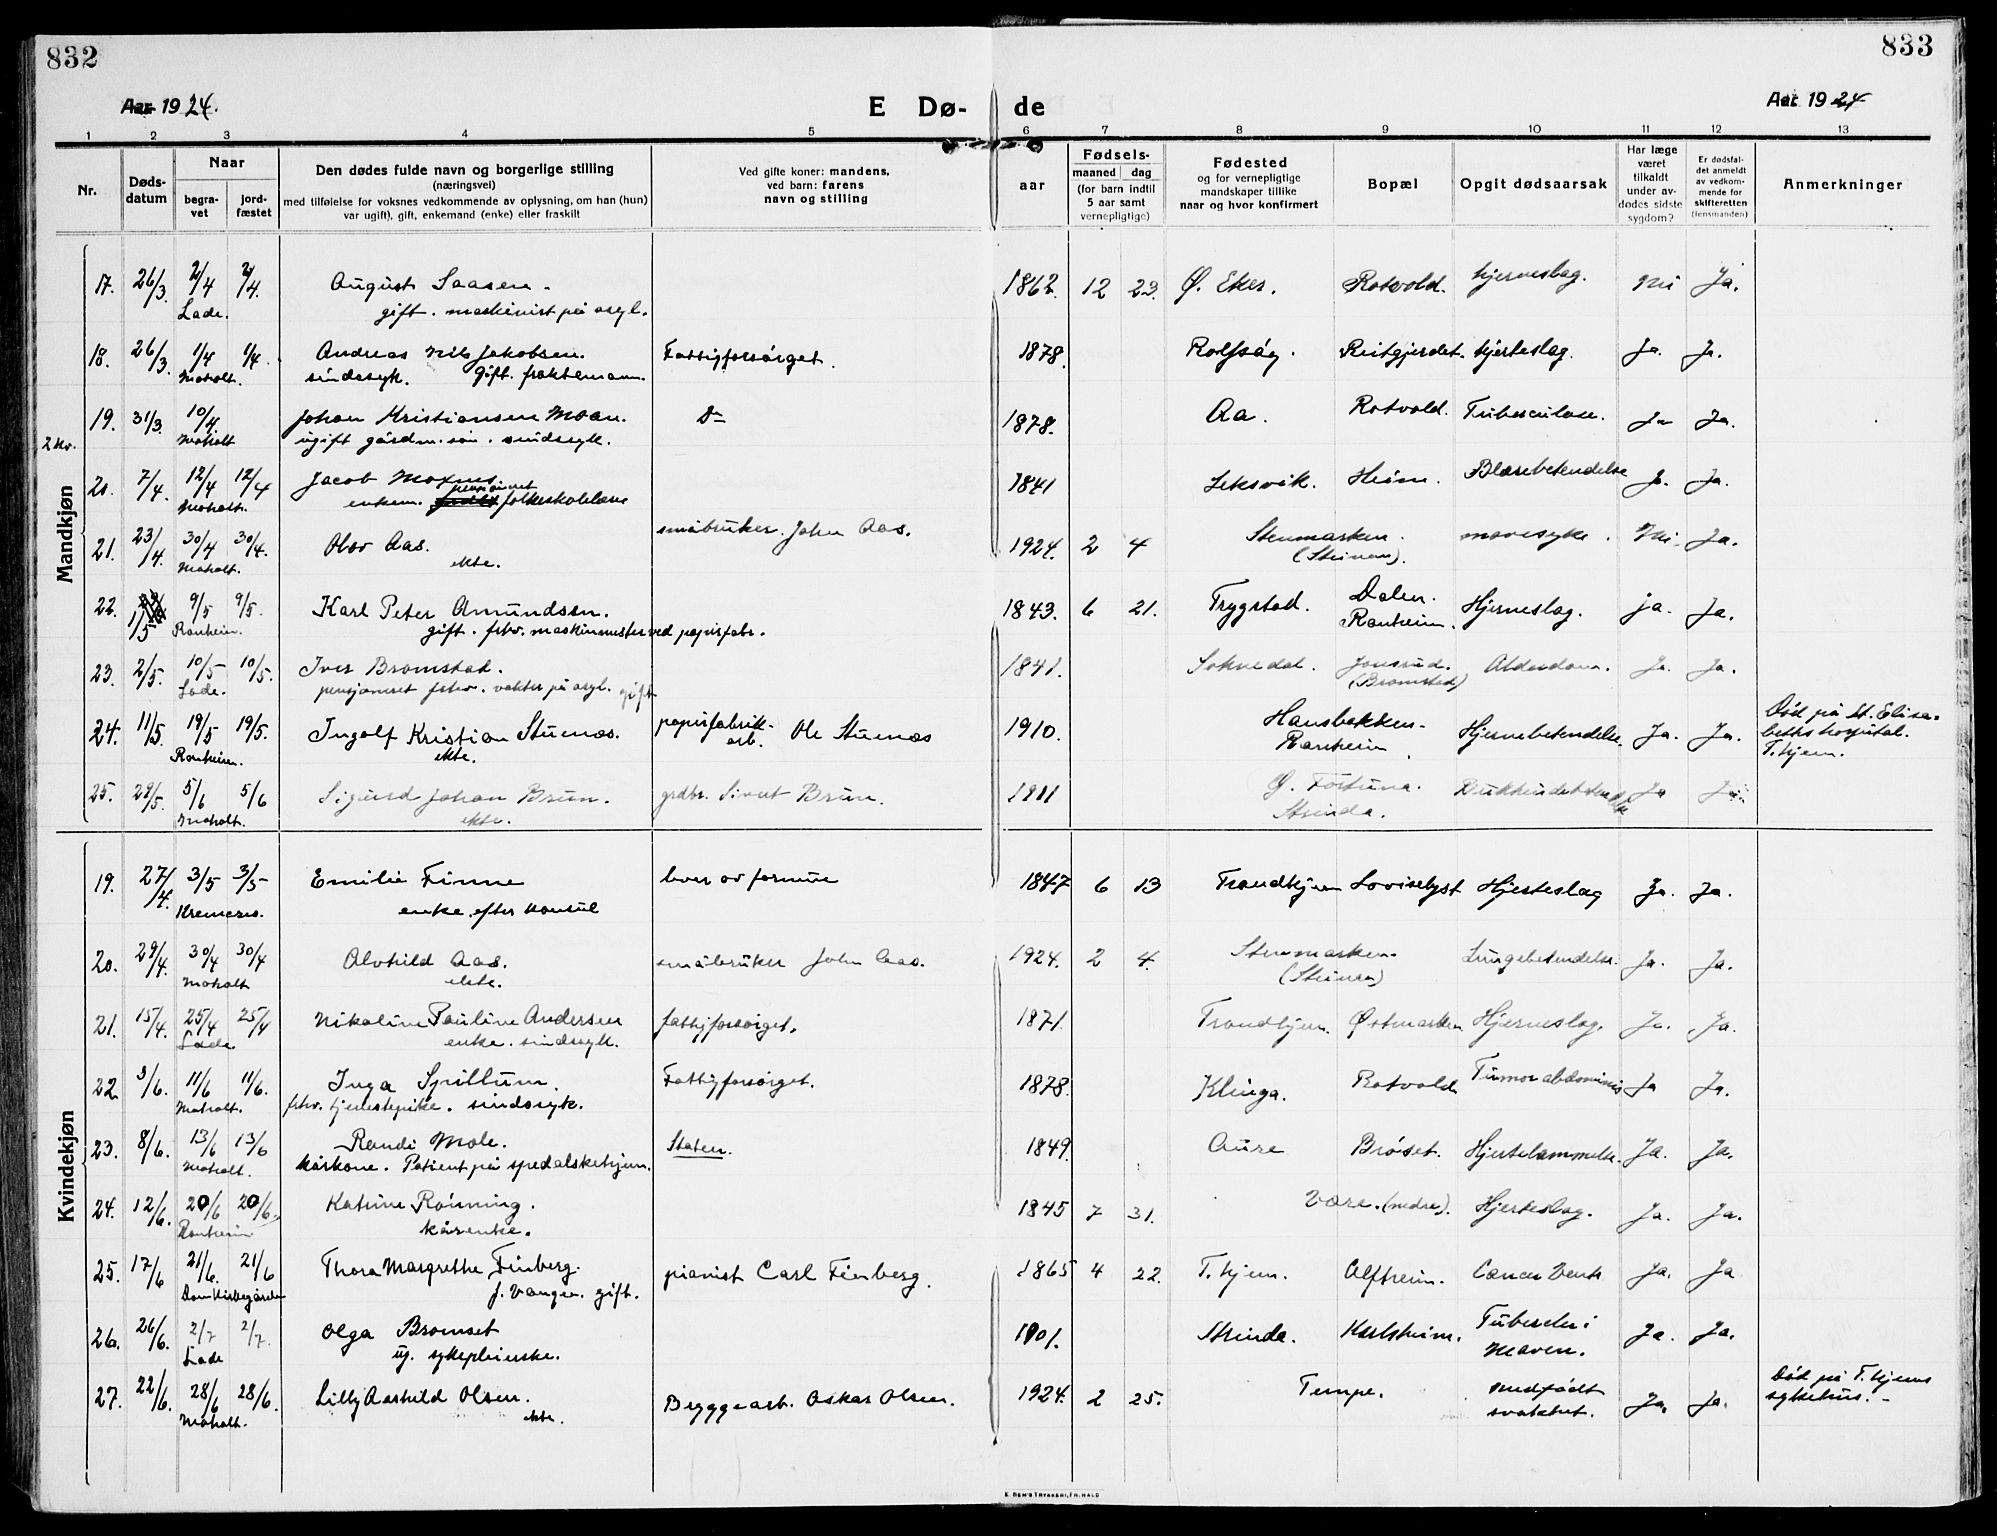 832
833
Aar 1924.
E Dø-
de
Aar 1924
1 2 3 4 5 6 7 8 9 10 11 12 13
Nr.
Døds-
datum
Naar
begra-
vet
jord-
fæstet
Den dødes fulde navn og borgerlige stilling
(næringsvei)
med tilføielse for voksnes vedkommende av oplysning, om han (hun)
var ugift), gift, enkemand (enke) eller fraskilt
Ved gifte koner: mandens,
ved barn: farens
navn og stilling
aar
Fødsels-
maaned dag
(for barn indtil
5 aar samt
vernepligtige)
Fødested
og for vernepligtige
mandskaper tillike
naar og hvor konfirmert
Bopæl
Opgit dødsaarsak
Har læge
været
tilkaldt
under av-
dødes sidste
sygdom?
Er dødsfal-
det anmeldt
av vedkom-
mende for
skifteretten
(lensmanden)
Anmerkninger
Mandkjøn
17. 26/3 2/4 2/4. August Saasen. 1862. 12 23. Ø. Eker. Rotvold. hjerneslag. Nei Ja.
Lade. gift. maskinist på asyl.
18. 26/3. 1/4 1/4. Andreas Nils Jakobsen. Fattigforsørget. 1878. Rolfsøy. Reitgjerdet. hjerteslag. Ja. Ja.
Moholt. sindssyk. gift. fraktemann.
19. 31/3. 10/4. Johan Kristiansen Moan. D- 1878. Aa. Rotvold. Tuberculose. Ja Ja.
Moholt ugift gårdm. søn. sindssyk.
20. 7/4. 12/4 12/4 Jacob Moxnes 1841 Leksvik. Heim. Blærebetendelse Ja. Ja.
Moholt. enkem. pensioneret folkeskolelærer
21. 23/4. 30/4 30/4. Olav Aas. småbruker John Aas. 1924. 2 4 Stenmarken. mavesyke. Nei. Ja.
Moholt. ekte. (Steinan).
22. 1/5 9/5 9/5. Karl Peter Amundssen. 1843. 6 21. Trygstad. Dalen. Hjerneslag. ja. Ja.
Ranheim. gift. frhv. maskinmester ved papirfabr. Ranheim.
23. 2/5. 10/5 10/5. Iver Bromstad. 1841. Soknedal. Jonsrud. Alderdom. Ja. Ja.
Lade. pensjoneret frhv. vakter på asyl. gift (Bromstad)
24. 11/5. 19/5 19/5. Ingolf Kristian Stuenæs. papirfabrik- arb. Ole Stuenæs 1910. Hansbakken- Hjernebetendelse. Ja. Ja. Død på St. Elisa-
Ranheim. ekte. Ranheim. bethshospital.
T.hjem.
25. 29/5. 5/6 5/6 Sigurd Johan Brun. grdbr. Sivert Brun. 1911 Ø. Fortuna. Bukhindebetendelse Ja Ja.
Moholt. ekte. Strinda.
Kvindekjøn
19. 27/4. 3/5 3/5 Emilie Finne lever av formue 1847 6 13 Trondhjem Loviselyst Hjerteslag Ja. Ja.
Kremeres. enke efter konsul
20. 29/4. 30/4 30/4 Alvhild Aas. småbruker John Aas. 1924. 2 4. Stenmarken- Lungebetendelse. Ja. Ja.
Moholt ekte. (Steinan)
21. 15/4. 25/4 25/4 Nikoline Pauline Andersen fattigforsørget. 1871. Trondhjem. Østmarken Hjerneslag. Ja. Ja.
Lade enke. sindssyk.
22. 3/6. 11/6 11/6. Inga Spillum. Fattigforsørget. 1878. Klinga. Rotvold Tumor abdominis Ja Ja.
Moholt. frhv. tjenestepike. sindssyk.
23. 8/6. 13/6 13/6 Randi Mole. Staten. 1849. Aure Brøset. Hjertelammelse. Ja. Ja.
Moholt. kårkone. Patient på spedalskehjem.
24. 12/6. 20/6 20/6. Katrine Rønning. 1845 7 31. Være. (nedre). Hjerteslag. Ja. Ja.
Ranheim kårenke.
25. 17/6 21/6. 21/6 Thora Margrethe Feinberg. pianist Carl Feinberg. 1865 4 22. T.hjem. Alfheim. Cancer Ventr Ja. Ja
Domkirkegården f. Vangen. gift.
26. 26/6. 2/7 2/7. Olga Bromset 1901. Strinda. Karlsheim. Tuberkler i Ja. Ja.
Lade ug. sykepleierske. Maven.
27. 22/6. 28/6 28/6. Lilly Aashild Olsen. Byggearb. Oskar Olsen. 1924. 2 25. Tempe. medfødt Ja. Ja. Død på T.hjems
Moholt. ekte. svakhet. sykehus.-
E. SEM'S TRYKKERI, FR.HALD